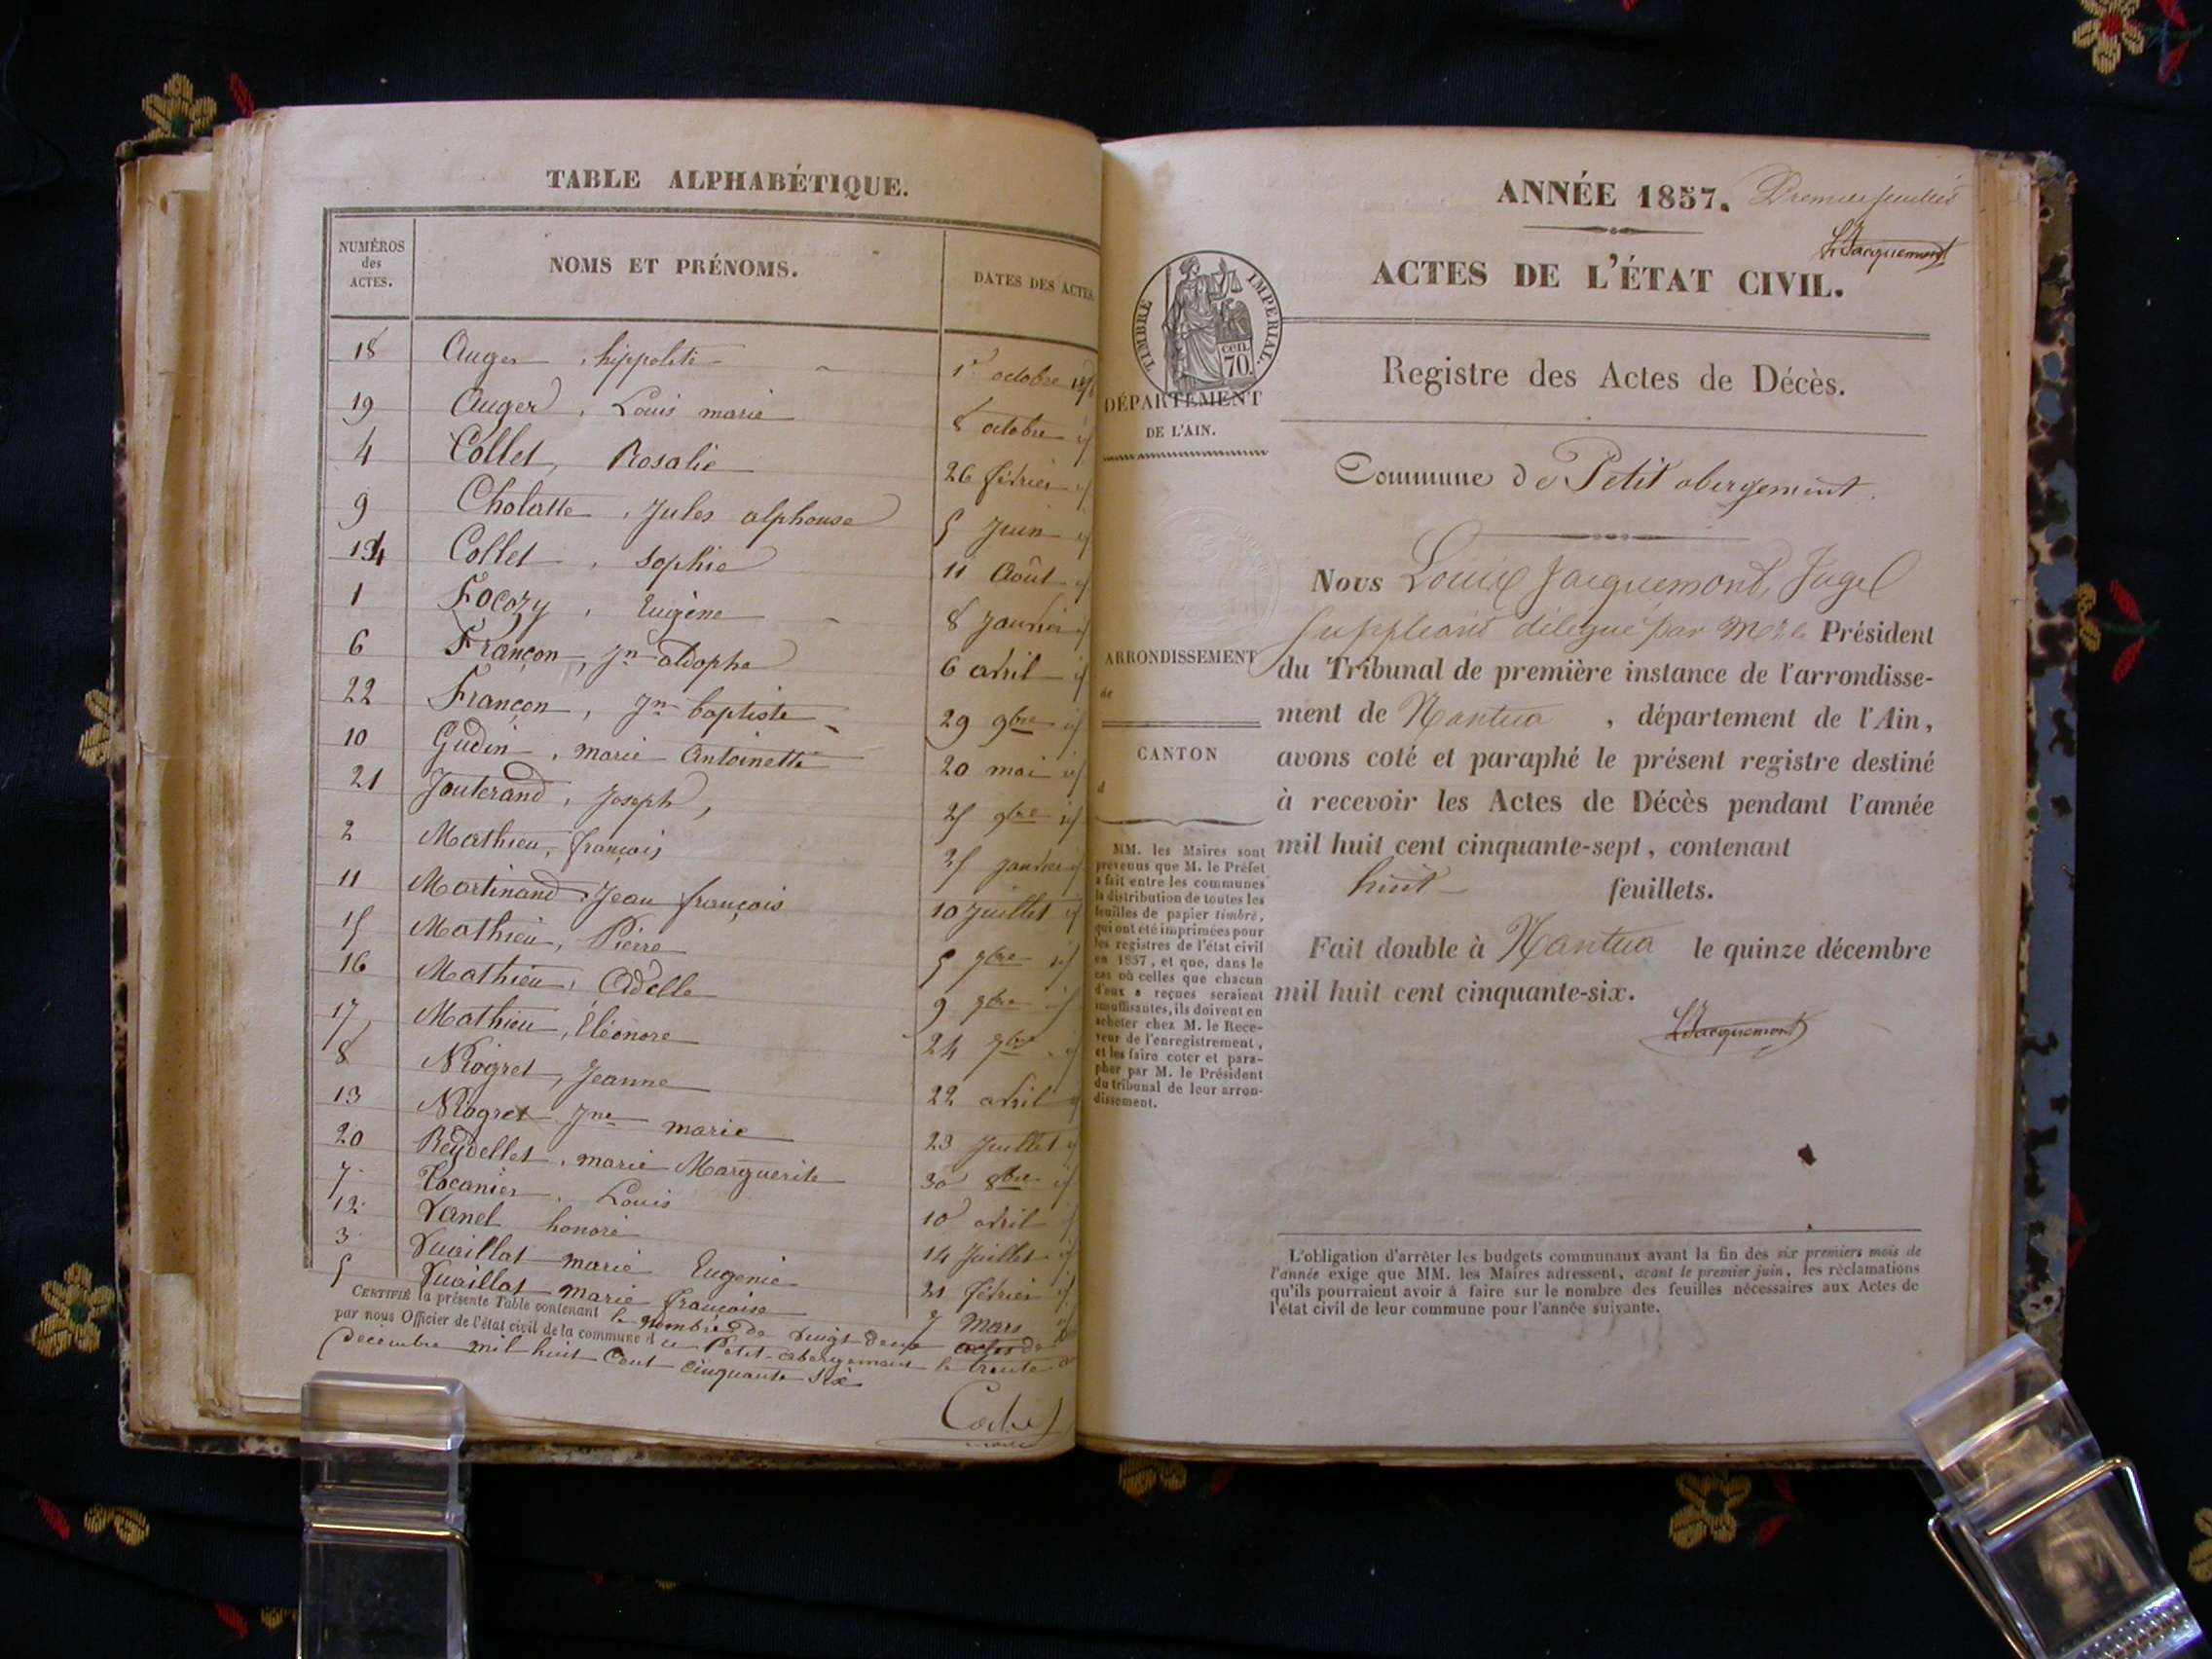 TABLE ALPHABÉTIQUE.
NUMÉROS
des
ACTES.
NOMS ET PRÉNOMS.
DATES DES ACTES
18 Auger, hippolite 1er octobre
19 Auger, Louis marie 8 octobre
4 Collet, Rosalie 26 février
9 Cholatte, Jules alphonse 5 Juin
14 Collet, Sophie 11 Août
1 Focozy, Eugène 8 Janvier
6 Françon, Jn adophe 6 avril
22 Françon, Jn baptiste 29 9bre
10 Gudin, marie Antoinette 20 mai
21 Jouterand, Joseph, 25 9bre
2 Mathieu, françois 25 janvier
11 Martinand Jean françois 10 Juillet
15 Mathieu, Pierre 5 7bre
16 Mathieu, Adelle 9 7bre
17 Mathieu, Éléonore 24 7bre
8 Niogret, Jeanne 22 avril
13 Niogret Jne marie 23 Juillet
20 Reydellet, marie Marguerite 30 8bre
7 Tocanier, Louis 10 avril
12 Vanel honoré 14 Juillet
3 Vuaillat marie Eugenie 21 février
5 Vuaillat marie françoise 7 Mars
CERTIFIÉ la présente Table contenant le nombre de vingt deux actes de
par nous Officier de l'état civil de la commune d u Petit-abergement le trente
Décembre mil huit Cent Cinquante Six
ANNÉE 1857. Premier feuillet
LJacquemont
ACTES DE L'ÉTAT CIVIL.
TIMBRE IMPERIAL.
CEN. 70.
DÉPARTEMENT
DE L'AIN.
Registre des Actes de Décès.
Commune de Petit abergement.
Nous Louis Jacquemont, Juge
Suppléant délégué par Mr le Président
ARRONDISSEMENT
de
du Tribunal de première instance de l'arrondisse-
ment de Nantua, département de l'Ain,
avons coté et paraphé le présent registre destiné
à recevoir les Actes de Décès pendant l'année
mil huit cent cinquante-sept, contenant
huit feuillets.
Fait double à Nantua le quinze décembre
mil huit cent cinquante-six.
LJacquemont
CANTON
d
MM. les Maires sont
prévenus que M. le Préfet
a fait entre les communes
la distribution de toutes les
feuilles de papier timbré,
qui ont été imprimées pour
les registres de l'état civil
en 1857, et que, dans le
cas où celles que chacun
d'eux a reçues seraient
insuffisantes, ils doivent en
acheter chez M. le Rece-
veur de l'enregistrement,
et les faire coter et para-
pher par M. le Président
du tribunal de leur arron-
dissement.
L'obligation d'arrêter les budgets communaux avant la fin des six premiers mois de
l'année exige que MM. les Maires adressent, avant le premier juin, les réclamations
qu'ils pourraient avoir à faire sur le nombre des feuilles nécessaires aux Actes de
l'état civil de leur commune pour l'année suivante.